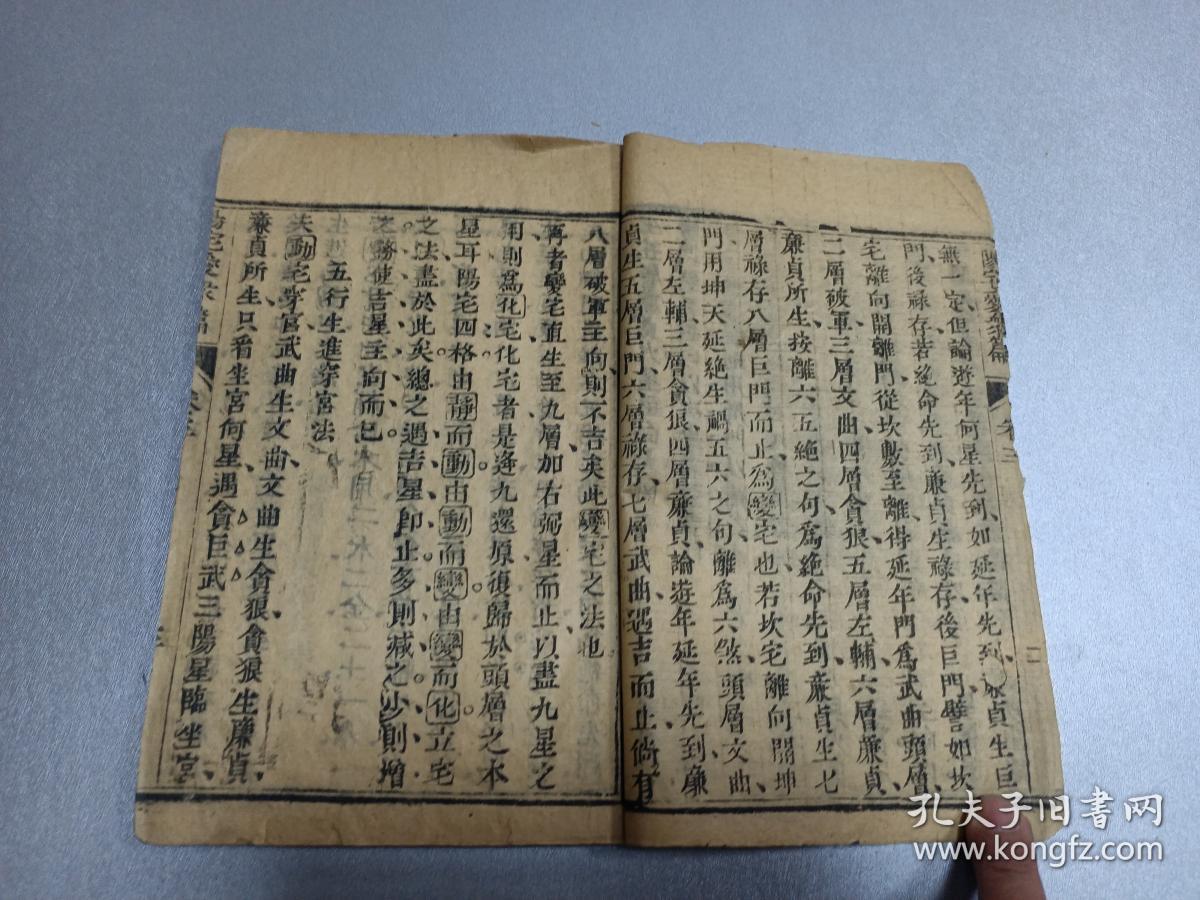 無一定但論遊年何星先到如延年先到廉貞生巨
門後祿存若絕命先到廉貞生祿存後巨門譬如坎
宅離向開離門從坎數至離得延年門爲武曲頭層
二層破軍三層文曲四層貪狼五層左輔六層廉貞
廉貞所生按離六五絕之句爲絕命先到廉貞生七
層祿存八層巨門而止爲變宅也若坎宅離向開坤
門用坤天延絕生禍五六之句離爲六煞頭層文曲
二層左輔三層貪狼四層廉貞論遊年延年先到廉
貞生五層巨門六層祿存七層武曲遇吉而止倘有
八層破軍主向則不吉矣此變宅之法也
再者變宅直生至九層加右弼星而止以盡九星之
用則爲化宅化宅者是逢九還原復歸於頭層之本
星耳陽宅四格由靜而動由動而變由變而化立宅
之法盡於此矣總之遇吉星即止多則減之少則增
之務使吉星主向而已
五行生進穿宮法
夫動宅穿宮武曲生文曲文曲生貪狼貪狼生廉貞
廉貞所生只看坐宮何星遇貪巨武三陽星臨坐宮
卷三
孔夫子旧书网
www.kongfz.com